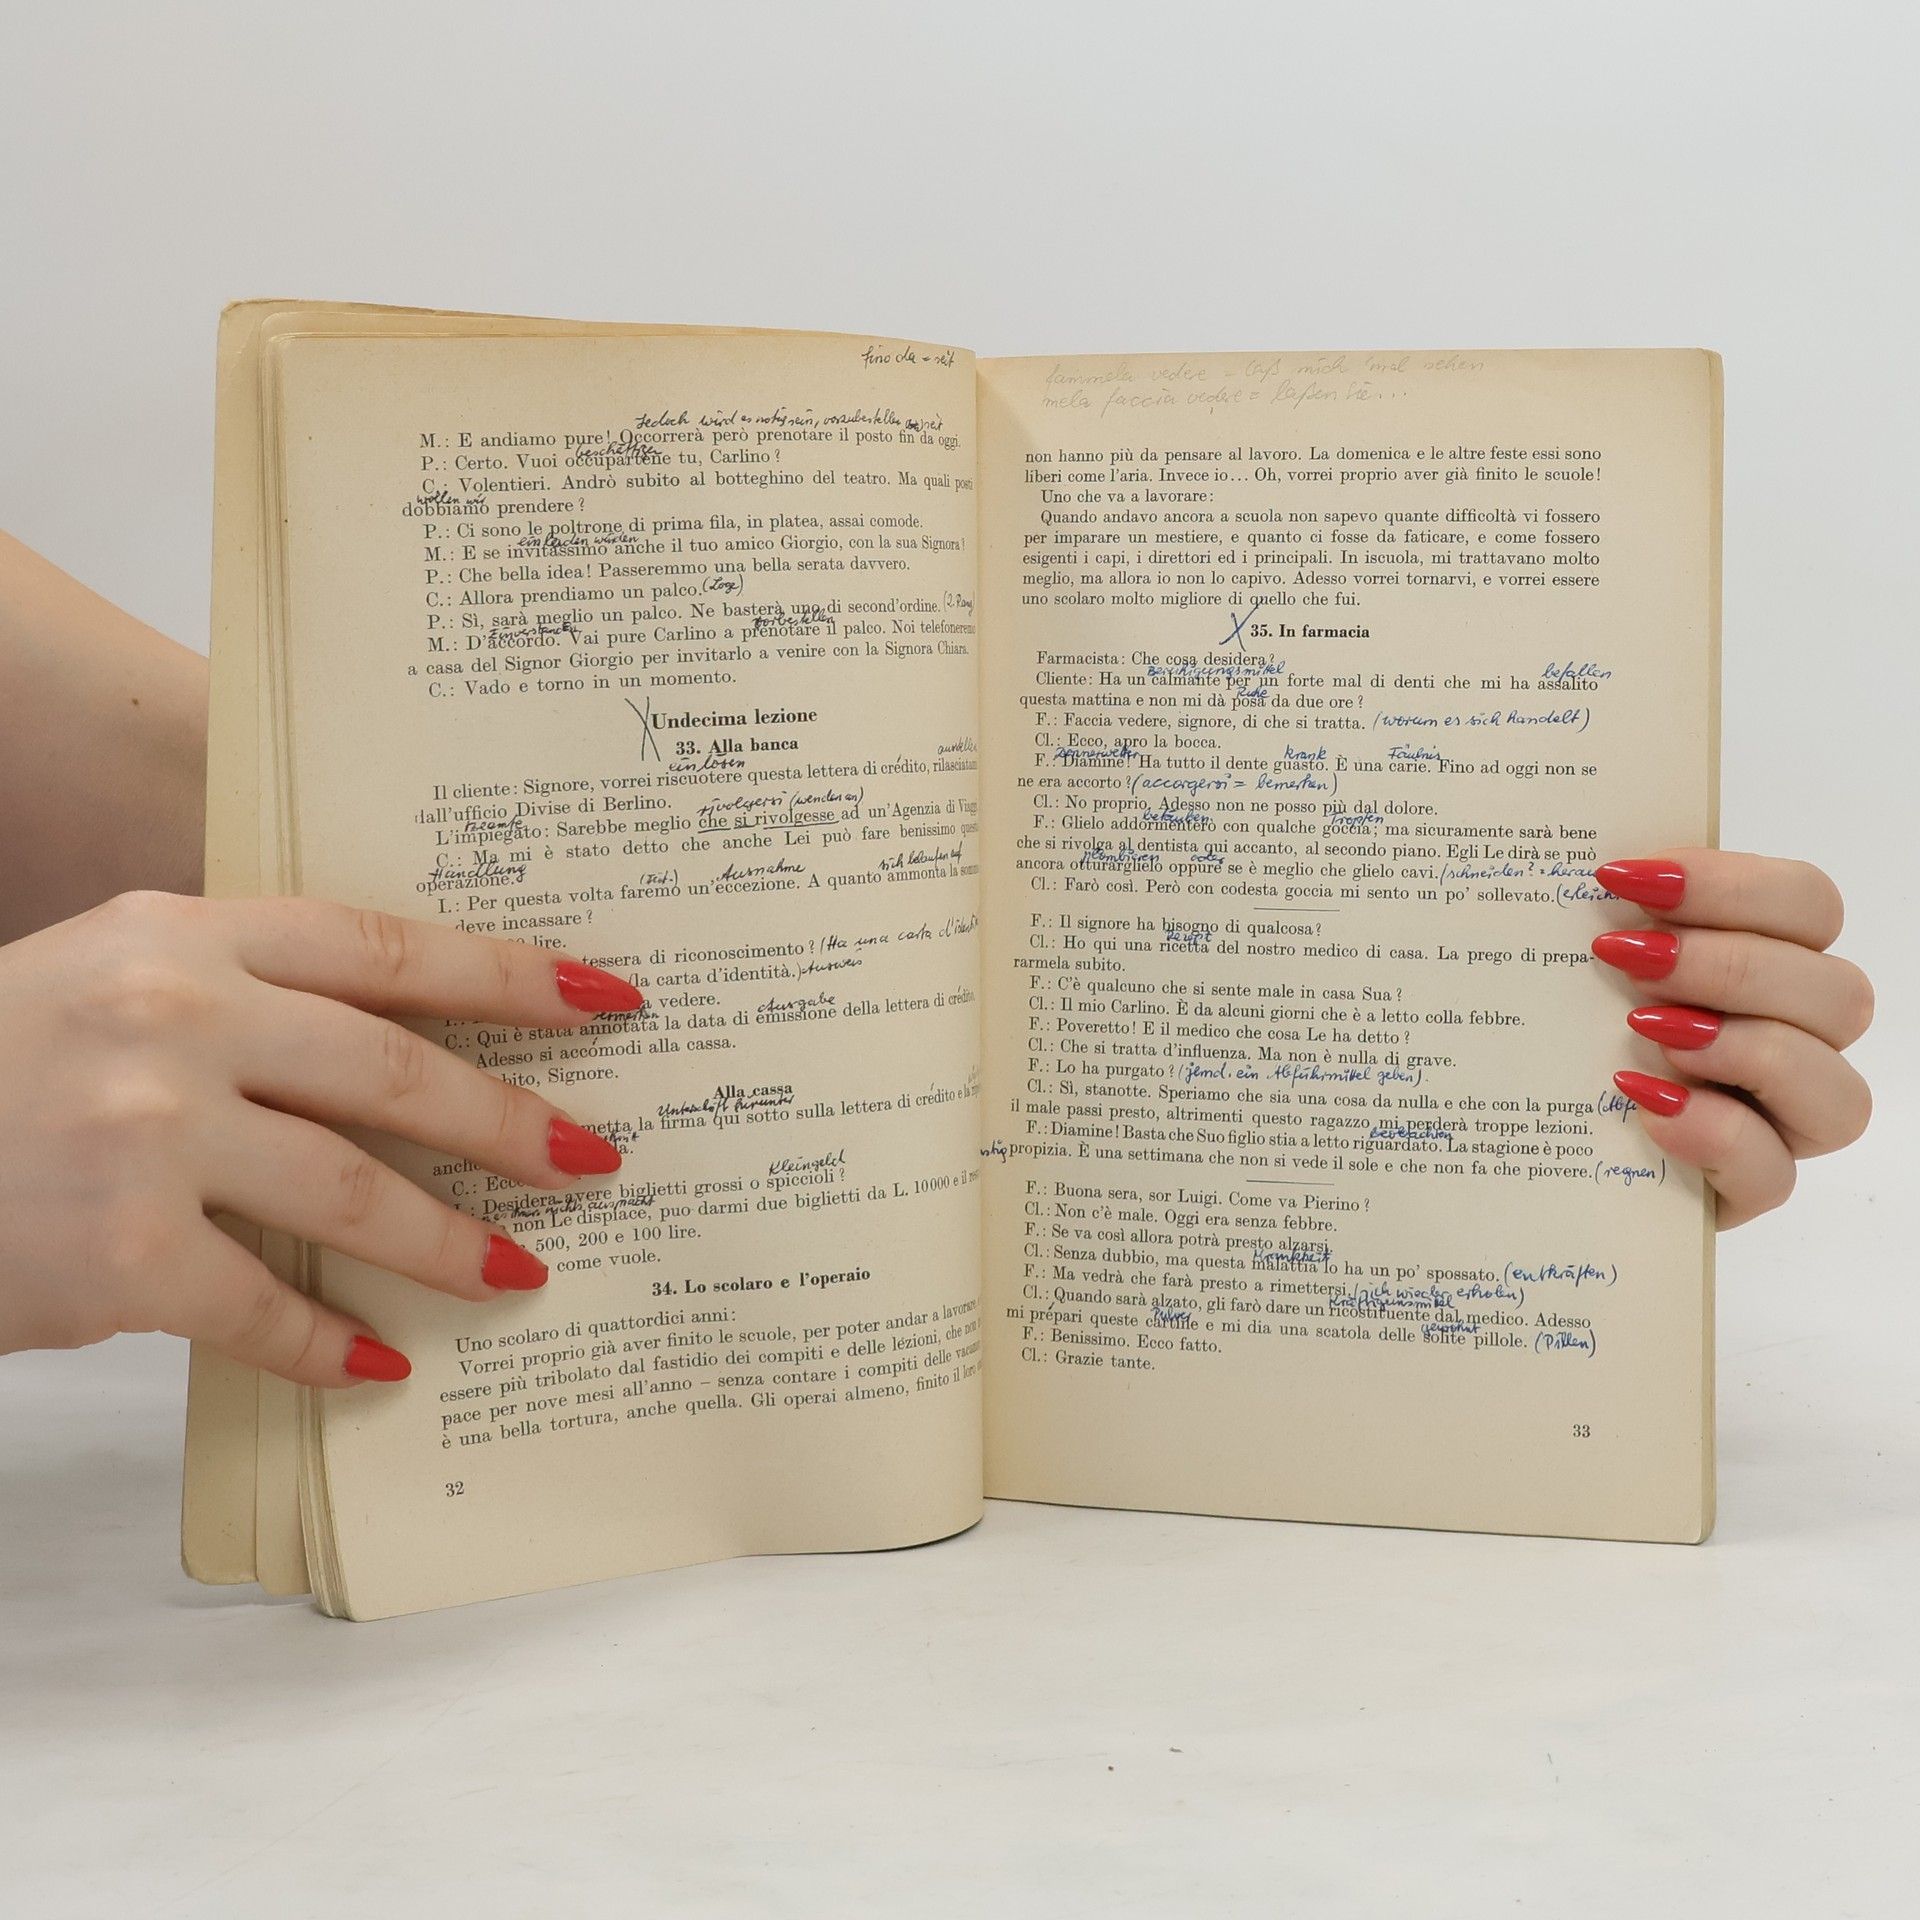 fino da = seit
Jedoch wird es nötig sein, vorzubestellen seit
M.: E andiamo pure! Occorrerà però prenotare il posto fin da oggi.
beschäftigen
P.: Certo. Vuoi occupartene tu, Carlino?
C.: Volentieri. Andrò subito al botteghino del teatro. Ma quali posti
wollen wir
dobbiamo prendere?
P.: Ci sono le poltrone di prima fila, in platea, assai comode.
einladen würden
M.: E se invitassimo anche il tuo amico Giorgio, con la sua Signora?
P.: Che bella idea! Passeremmo una bella serata davvero.
C.: Allora prendiamo un palco. (Loge)
P.: Sì, sarà meglio un palco. Ne basterà uno di second'ordine. (2. Rang)
Einverstanden vorbestellen
M.: D'accordo. Vai pure Carlino a prenotare il palco. Noi telefoneremo
a casa del Signor Giorgio per invitarlo a venire con la Signora Chiara.
C.: Vado e torno in un momento.
X Undecima lezione
33. Alla banca
einlösen
Il cliente: Signore, vorrei riscuotere questa lettera di crédito, rilasciatami
dall'ufficio Divise di Berlino. rivolgersi (wenden an)
Beamte
L'impiegato: Sarebbe meglio che si rivolgesse ad un'Agenzia di Viaggi
C.: Ma mi è stato detto che anche Lei può fare benissimo questa
Handlung
operazione.
(Fut.) Ausnahme sich belaufen auf
I.: Per questa volta faremo un'eccezione. A quanto ammonta la somma
deve incassare?
lire.
tessera di riconoscimento? (Ha una carta d'identi
la carta d'identità.) Ausweis
a vedere.
vermerken Ausgabe
C.: Qui è stata annotata la data di emissione della lettera di crédito.
Adesso si accómodi alla cassa.
bito, Signore.
Alla cassa
Unterschrift hierunter
metta la firma qui sotto sulla lettera di crédito e la
anche
C.: Ecco
Kleingeld
I.: Desidera avere biglietti grossi o spiccioli?
es Ihnen nichts ausmacht
non Le displace, puo darmi due biglietti da L. 10000 e il resto
500, 200 e 100 lire.
come vuole.
34. Lo scolaro e l'operaio
Uno scolaro di quattordici anni:
Vorrei proprio già aver finito le scuole, per poter andar a lavorare
essere più tribolato dal fastidio dei compiti e delle lézioni, che non
pace per nove mesi all'anno – senza contare i compiti delle vacanze
è una bella tortura, anche quella. Gli operai almeno, finito il loro
32
fammela vedere = laß mich 'mal sehen
mela faccia vedere = laßen Sie...
non hanno più da pensare al lavoro. La domenica e le altre feste essi sono
liberi come l'aria. Invece io... Oh, vorrei proprio aver già finito le scuole!
Uno che va a lavorare:
Quando andavo ancora a scuola non sapevo quante difficoltà vi fossero
per imparare un mestiere, e quanto ci fosse da faticare, e come fossero
esigenti i capi, i direttori ed i principali. In iscuola, mi trattavano molto
meglio, ma allora io non lo capivo. Adesso vorrei tornarvi, e vorrei essere
uno scolaro molto migliore di quello che fui.
X 35. In farmacia
Farmacista: Che cosa desidera?
Beruhigungsmittel befallen
Cliente: Ha un calmante per un forte mal di denti che mi ha assalito
Ruhe
questa mattina e non mi dà posa da due ore?
F.: Faccia vedere, signore, di che si tratta. (worum es sich handelt)
Cl.: Ecco, apro la bocca.
Donnerwetter krank Fäulnis
F.: Diamine! Ha tutto il dente guasto. È una carie. Fino ad oggi non se
ne era accorto? (accorgersi = bemerken)
Cl.: No proprio. Adesso non ne posso più dal dolore.
betäuben Tropfen
F.: Glielo addormenterò con qualche goccia; ma sicuramente sarà bene
che si rivolga al dentista qui accanto, al secondo piano. Egli Le dirà se può
plombieren oder
ancora otturarglielo oppure se è meglio che glielo cavi. (schneiden? = herau
Cl.: Farò così. Però con codesta goccia mi sento un po' sollevato. (erleich
F.: Il signore ha bisogno di qualcosa?
Rezept
Cl.: Ho qui una ricetta del nostro medico di casa. La prego di prepa-
rarmela subito.
F.: C'è qualcuno che si sente male in casa Sua?
Cl.: Il mio Carlino. È da alcuni giorni che è a letto colla febbre.
F.: Poveretto! E il medico che cosa Le ha detto?
Cl.: Che si tratta d'influenza. Ma non è nulla di grave.
F.: Lo ha purgato? (jemd. ein Abführmittel geben).
Cl.: Sì, stanotte. Speriamo che sia una cosa da nulla e che con la purga (Abf
il male passi presto, altrimenti questo ragazzo mi perderà troppe lezioni.
beobachten
F.: Diamine! Basta che Suo figlio stia a letto riguardato. La stagione è poco
propizia. È una settimana che non si vede il sole e che non fa che piovere. (regnen)
F.: Buona sera, sor Luigi. Come va Pierino?
Cl.: Non c'è male. Oggi era senza febbre.
F.: Se va così allora potrà presto alzarsi.
Krankheit
Cl.: Senza dubbio, ma questa malattia lo ha un po' spossato. (entkräften)
F.: Ma vedrà che farà presto a rimettersi. (sich wieder erholen)
Kräftigungsmittel
Cl.: Quando sarà alzato, gli farò dare un ricostituente dal medico. Adesso
Pulver gewohnt
mi prépari queste cartine e mi dia una scatola delle solite pillole. (Pillen)
F.: Benissimo. Ecco fatto.
Cl.: Grazie tante.
33